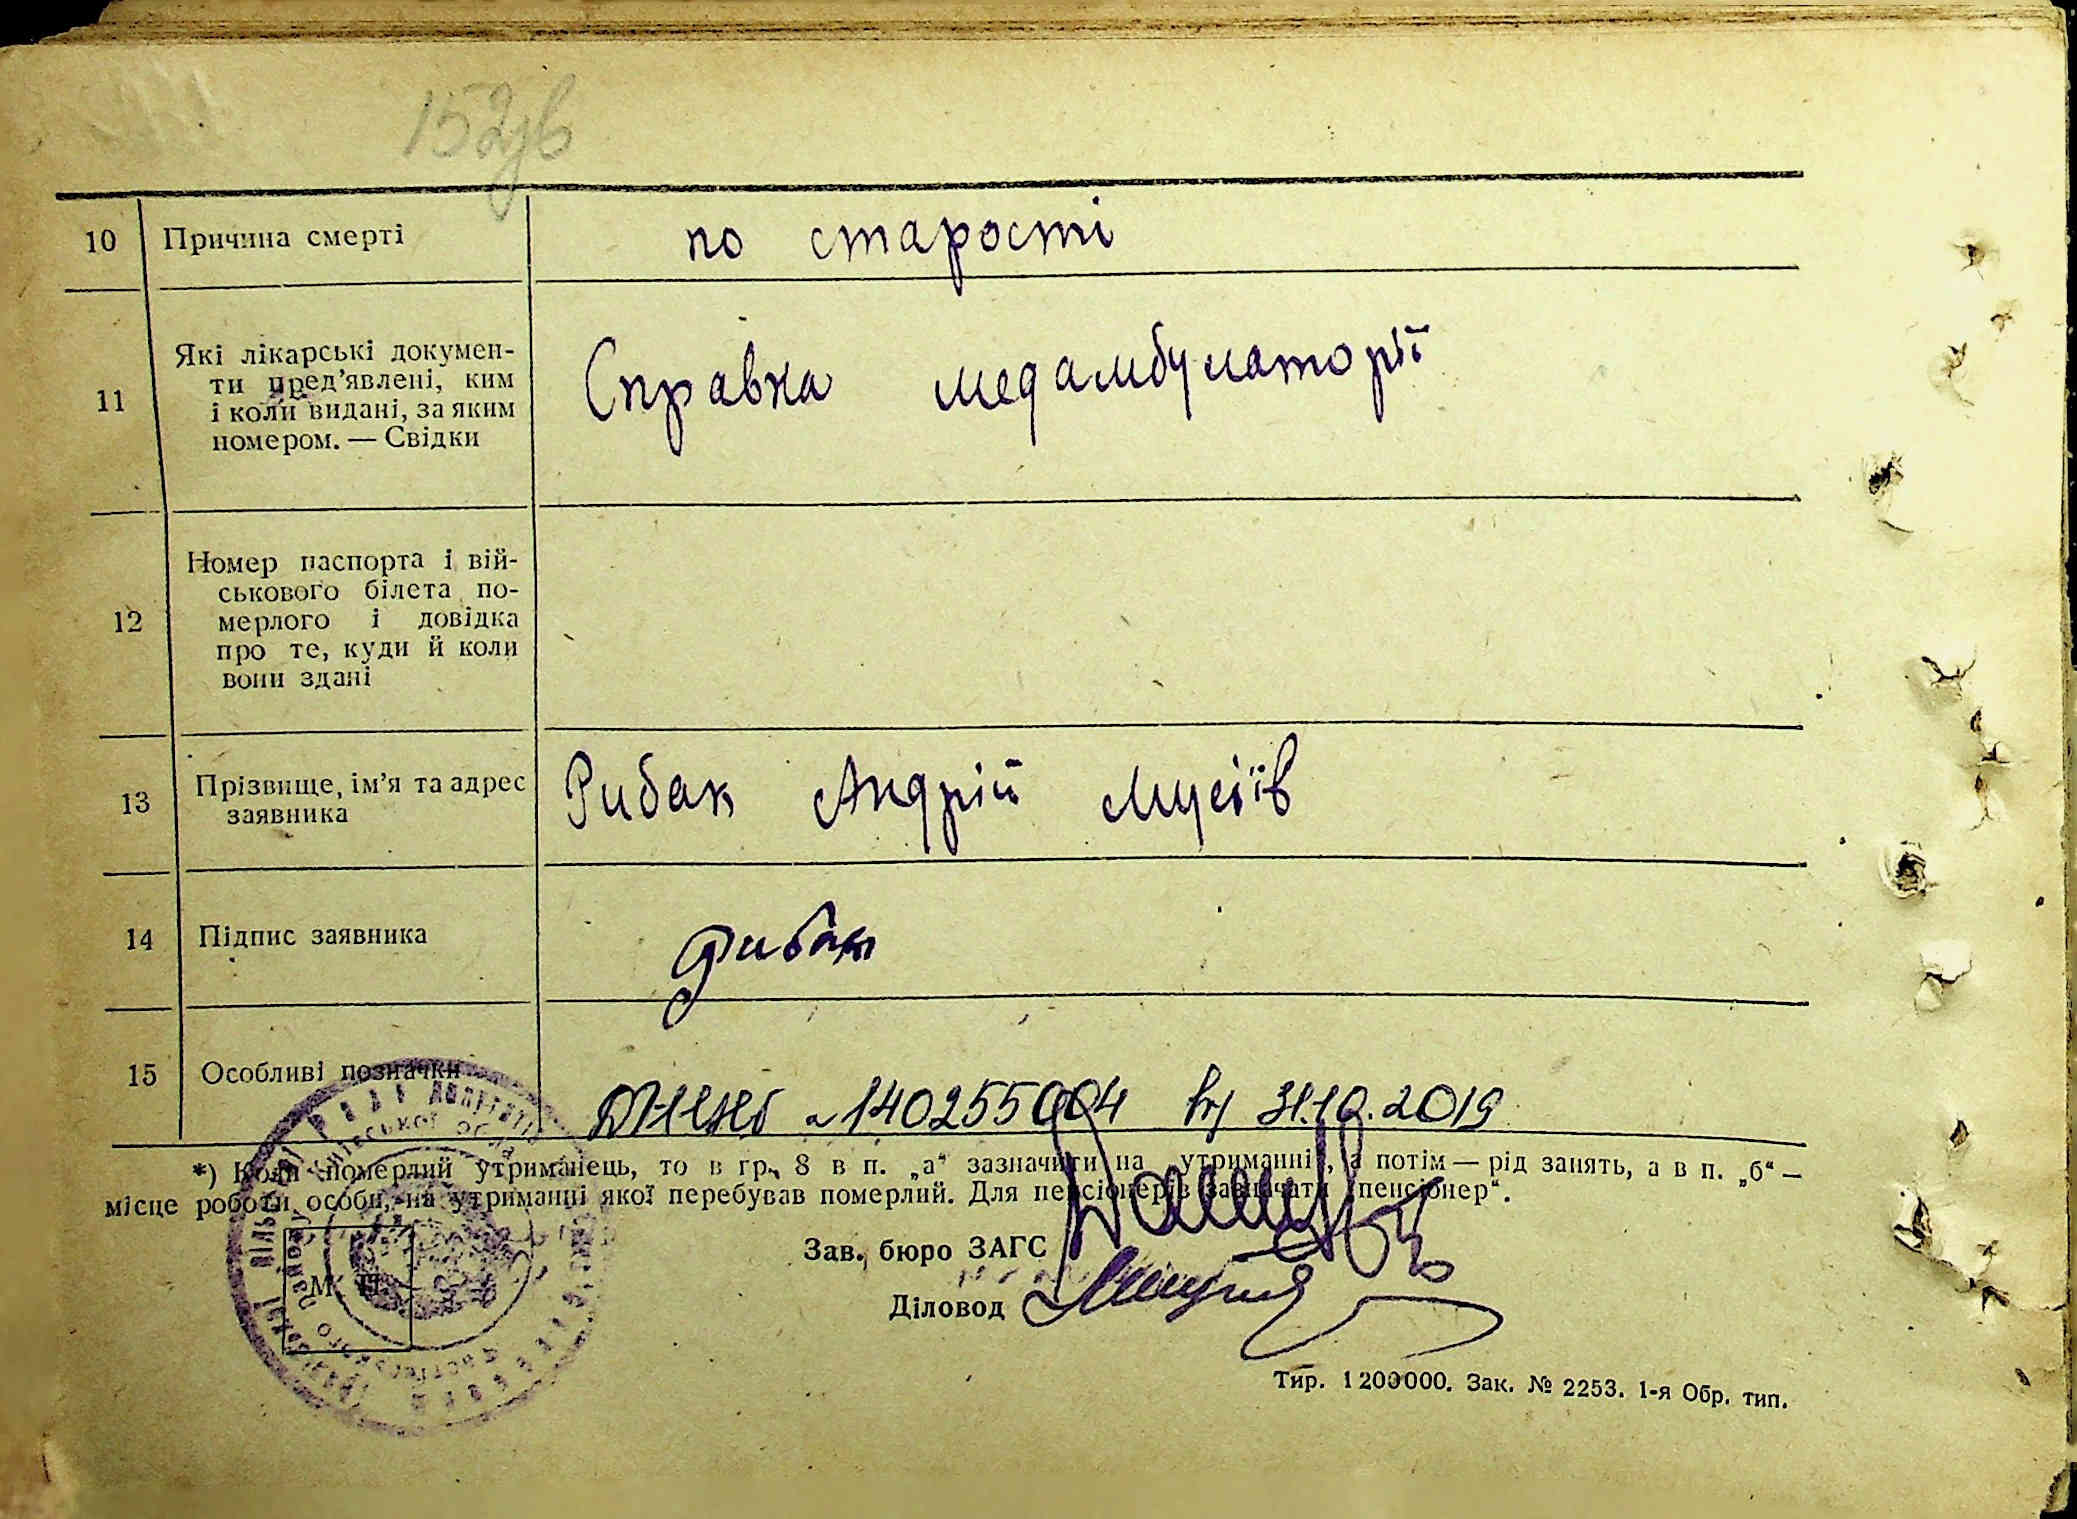 152зв
10 Причина смерті по старості
11 Які лікарські докумен-
ти пред'явлені, ким
і коли видані, за яким
номером. — Свідки
Справка медамбулаторії
12 Номер паспорта і вій-
ськового білета по-
мерлого і довідка
про те, куди й коли
вони здані
13 Прізвище, ім'я та адрес
заявника
Рибак Андрій Мусіїв
14 Підпис заявника Рибак
15 Особливі позначки
140255004 від 31.10.2019
*) Коли померлий утриманець, то в гр. 8 в п. „а“ зазначити на утриманні, а потім — рід занять, а в п. „б“ —
місце роботи особи, на утриманні якої перебував померлий. Для пенсіонерів зазначати „пенсіонер“.
Зав. бюро ЗАГС
Діловод
М. П.
Київської
Тир. 1200000. Зак. № 2253. 1-я Обр. тип.